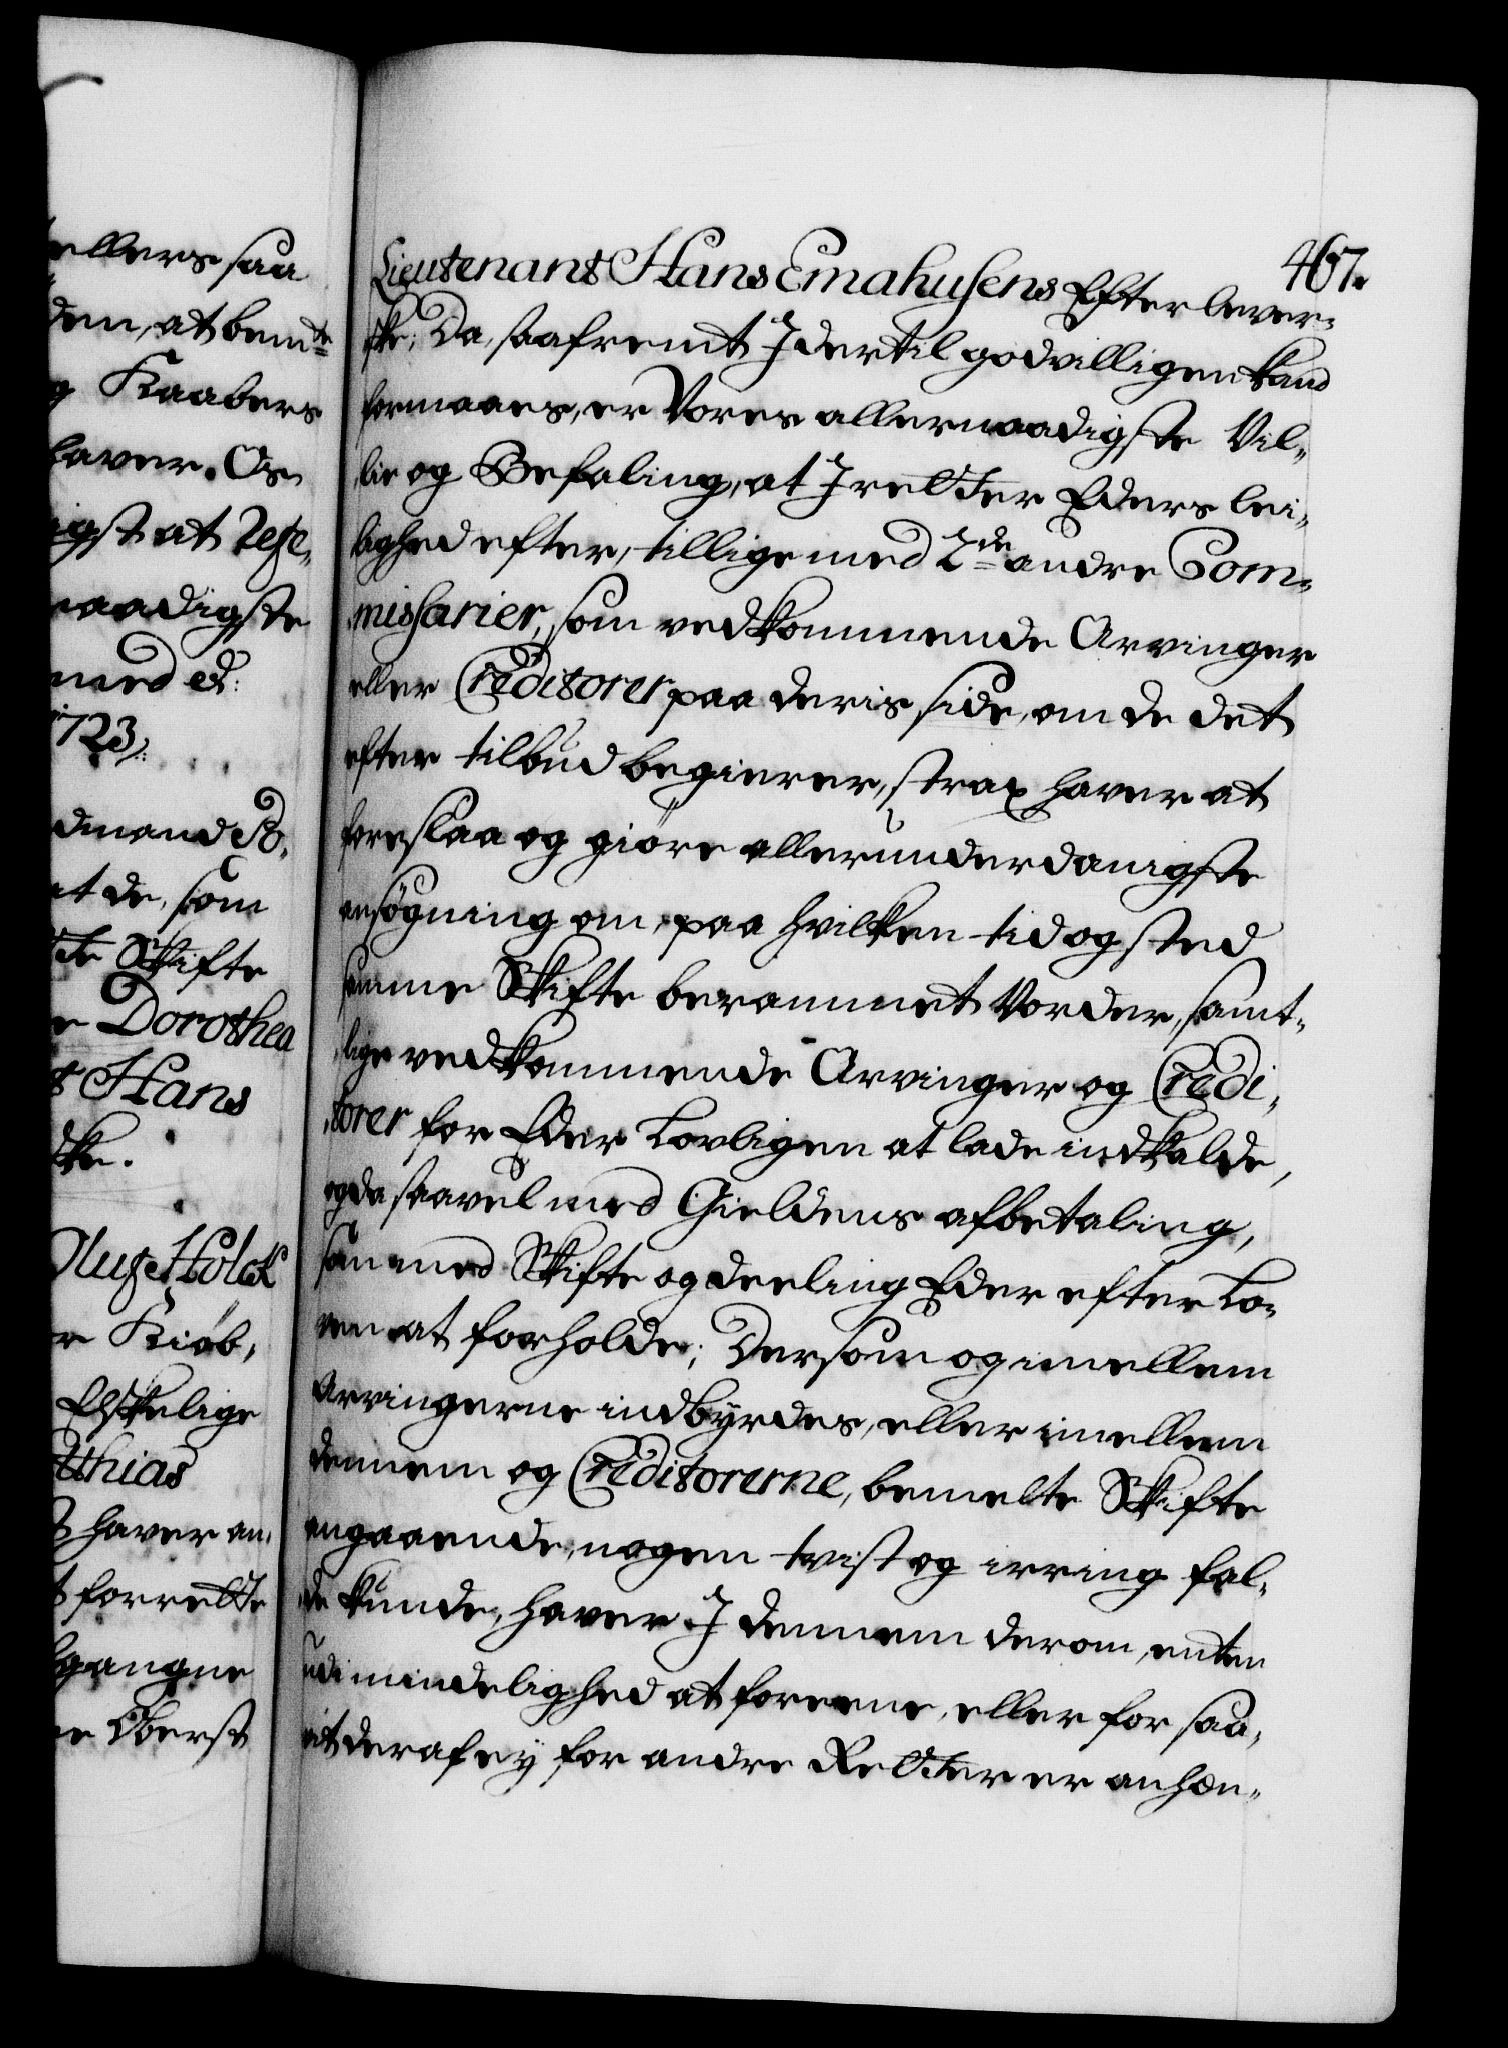 ellers saa
den, at bem.te
g Kaabers
haver. Os
igst at Rese¬
naadigste
med et:
1723.
dmand Po¬
at de, som
te Skifte
e Dorothea
t Hans
ske.
Oluf Holck
r Kiøb,
Elskelige
tthias
t haver an¬
t forrette
fgangne
ne Oberst
467.
Lieutenant Hans Emahusens Efterlever¬
ske; Da, saafremt I dertil godvilligen kand
formaaes, er Vores allernaadigste Vil¬
lie og Befaling, at I retter Eders lei¬
lighed efter, tillige med 2de andre Com¬
missarier, som vedkommende Arvinger
eller Creditorer paa deris side, om de det
efter tilbud begierer, strax haver at
foreslaa og giöre allerunderdanigste
ansögning om, paa hvilken tid og sted
samme Skifte berammet Vorder, samt¬
lige vedkommende Arvinger og Credi¬
torer for Eder Lovligen at lade indkalde,
og da saavel med Gieldens afbetaling,
som med Skifte og deeling Eder efter Lo¬
ven at forholde; Dersom og imellem
Arvingerne indbÿrdes, eller imellem
dennem og Creditorerne, bemelte Skifte
angaaende, nogen tvist og irring fal¬
de kunde, haver I dennem derom, enten
udi mindelighed at foreene, eller for saa¬
vit deraf ey for andre Retter er anhæn¬